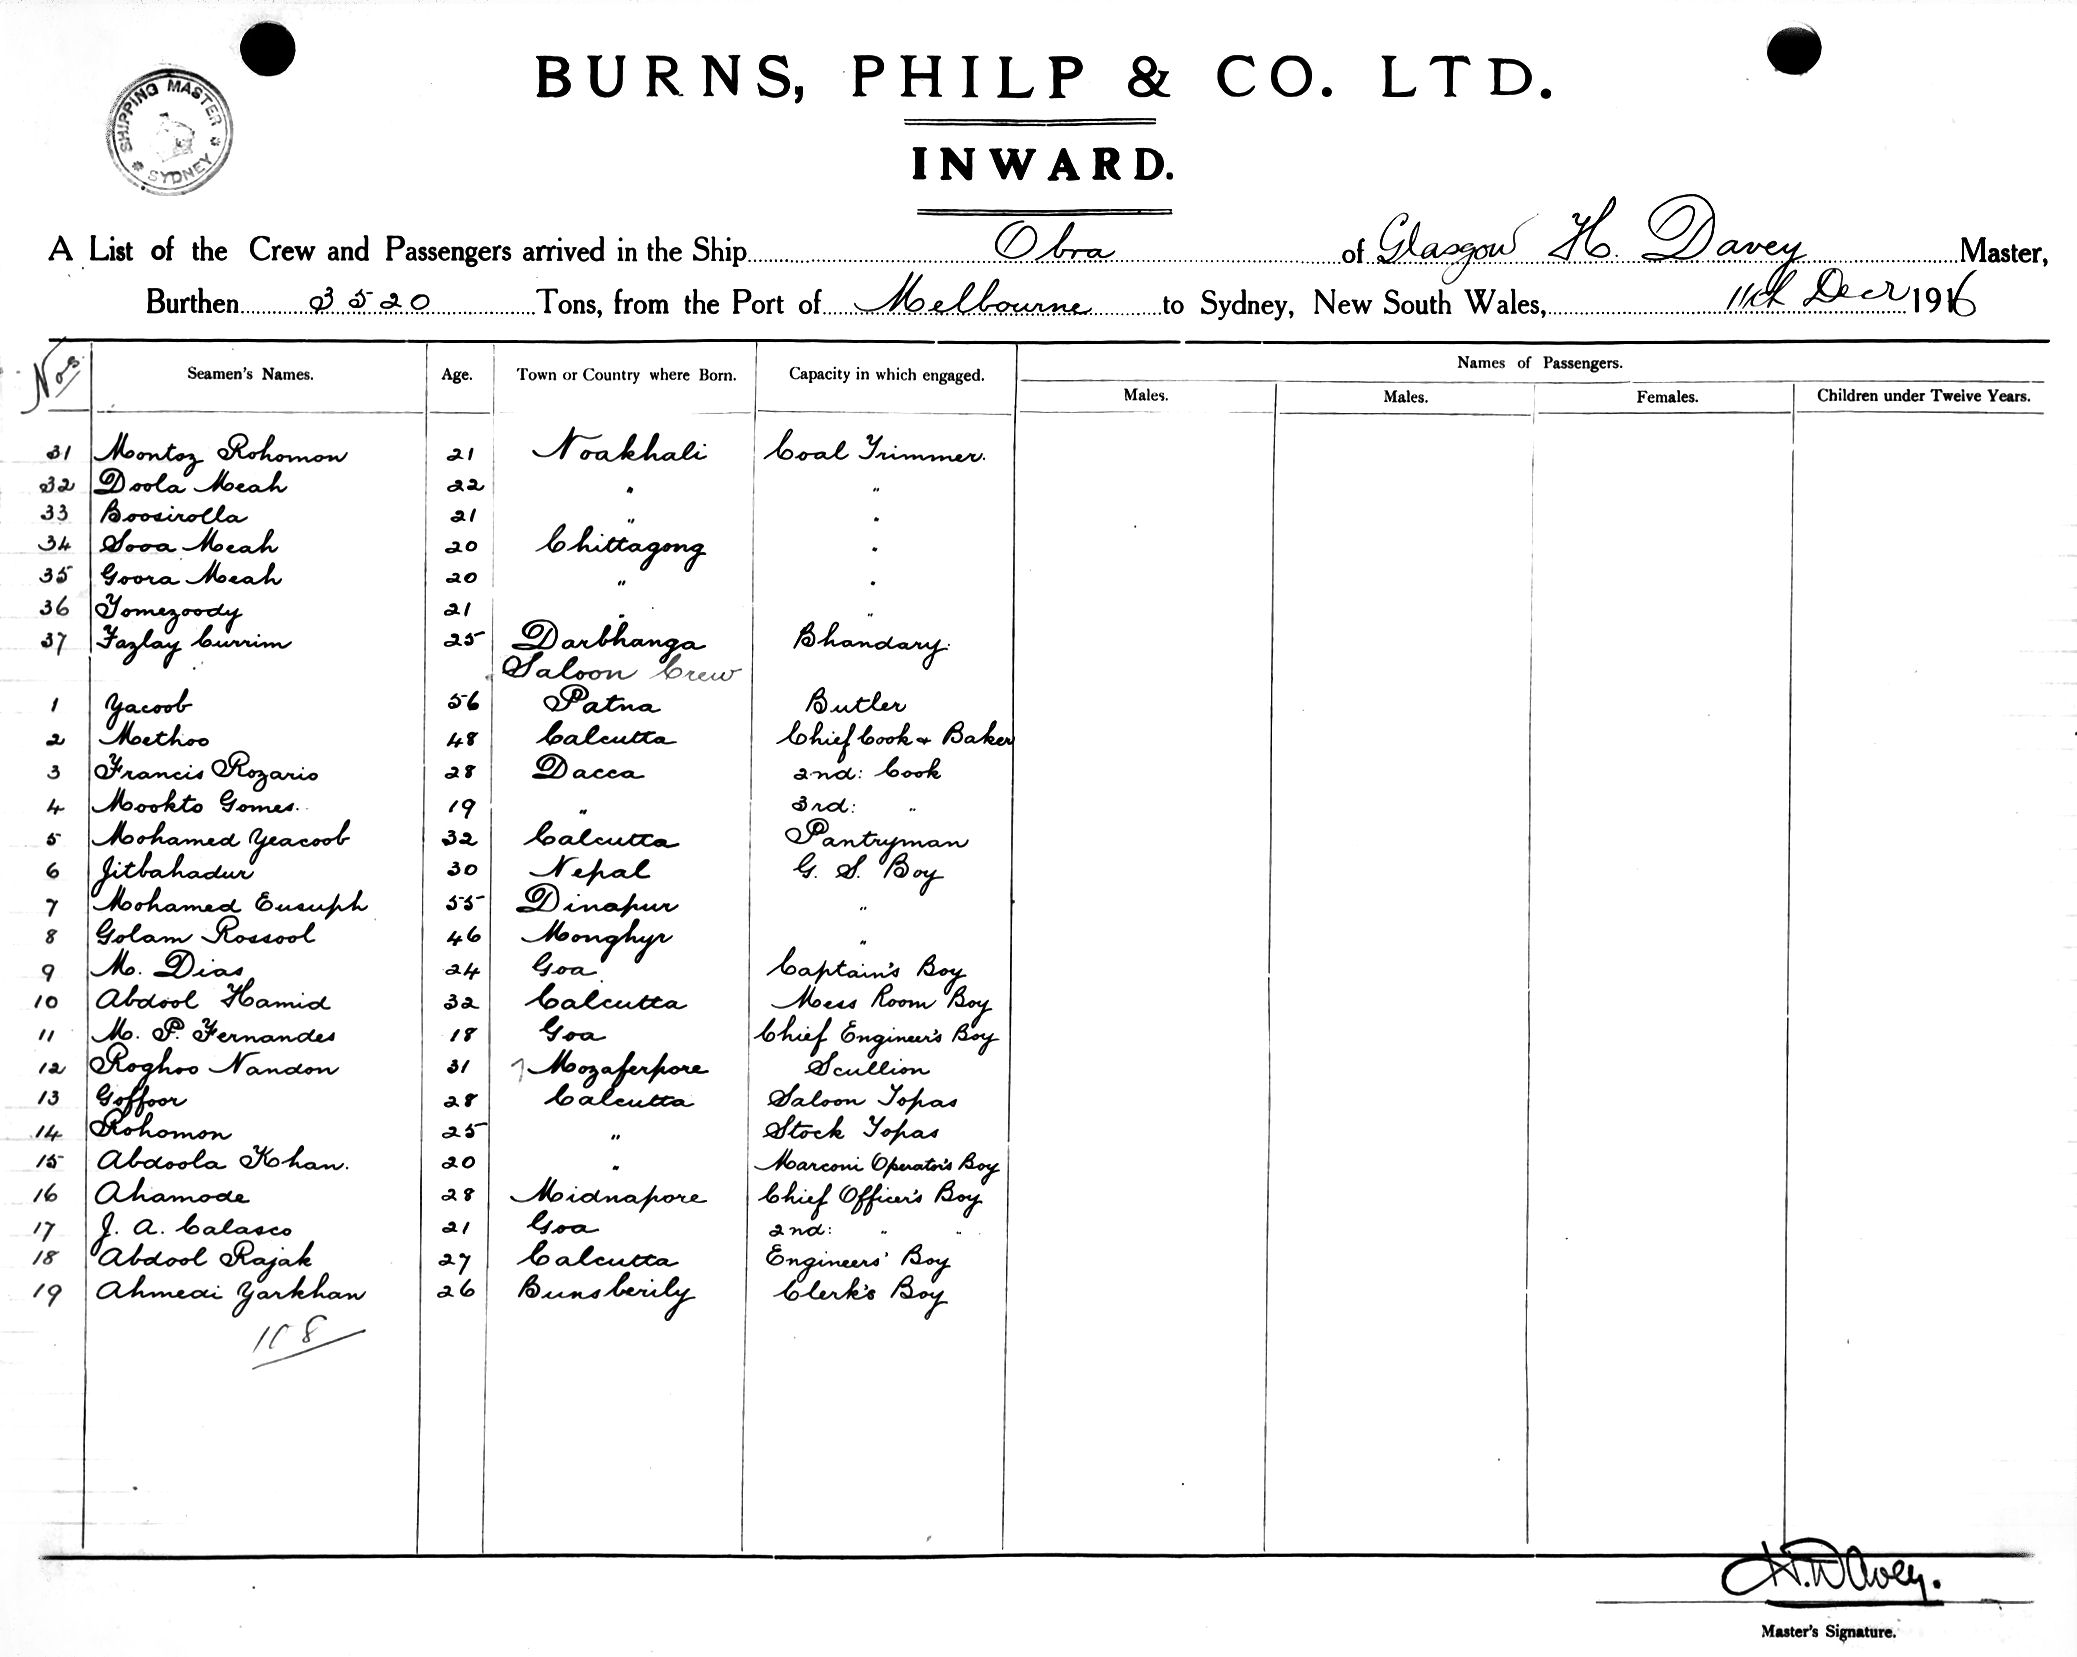 SHIPPING MASTER
SYDNEY
BURNS, PHILP & CO. LTD.
INWARD.
A List of the Crew and Passengers arrived in the Ship Obra of Glasgow H. Davey Master,
Burthen 3520 Tons, from the Port of Melbourne to Sydney, New South Wales, 11th Decr 1916
Names of Passengers.
Nos Seamen's Names. Age. Town or Country where Born. Capacity in which engaged. Males. Males. Females. Children under Twelve Years.
31 Montoz Rohomon 21 Noakhali Coal Trimmer.
32 Doola Meah 22 " "
33 Boosirolla 21 " "
34 Sova Meah 20 Chittagong "
35 Goora Meah 20 " "
36 Tomezoody 21 " "
37 Fazlay Currim 25 Darbhanga Bhandary.
Saloon Crew
1 Yacoob 56 Patna Butler
2 Methoo 48 Calcutta Chief Cook & Baker
3 Francis Rozario 28 Dacca 2nd: Cook
4 Mookto Gomes. 19 " 3rd: "
5 Mohamed Yeacoob 32 Calcutta Pantryman
6 Jitbahadur 30 Nepal G. S. Boy
7 Mohamed Eusuph 55 Dinapur "
8 Golam Rossool 46 Monghyr "
9 M. Dias 24 Goa Captain's Boy
10 Abdool Hamid 32 Calcutta Mess Room Boy
11 M. P. Fernandes 18 Goa Chief Engineer's Boy
12 Roghoo Nandon 31 Mozaferpore Scullion
13 Goffoor 28 Calcutta Saloon Topas
14 Rohomon 25 " Stock Topas
15 Abdoola Khan. 20 " Marconi Operator's Boy
16 Ahamode 28 Midnapore Chief Officer's Boy
17 J. A. Calasco 21 Goa 2nd: " "
18 Abdool Rajak 27 Calcutta Engineers' Boy
19 Ahmedi Yarkhan 26 Bunsberily Clerk's Boy
118
H. Davey.
Master's Signature.